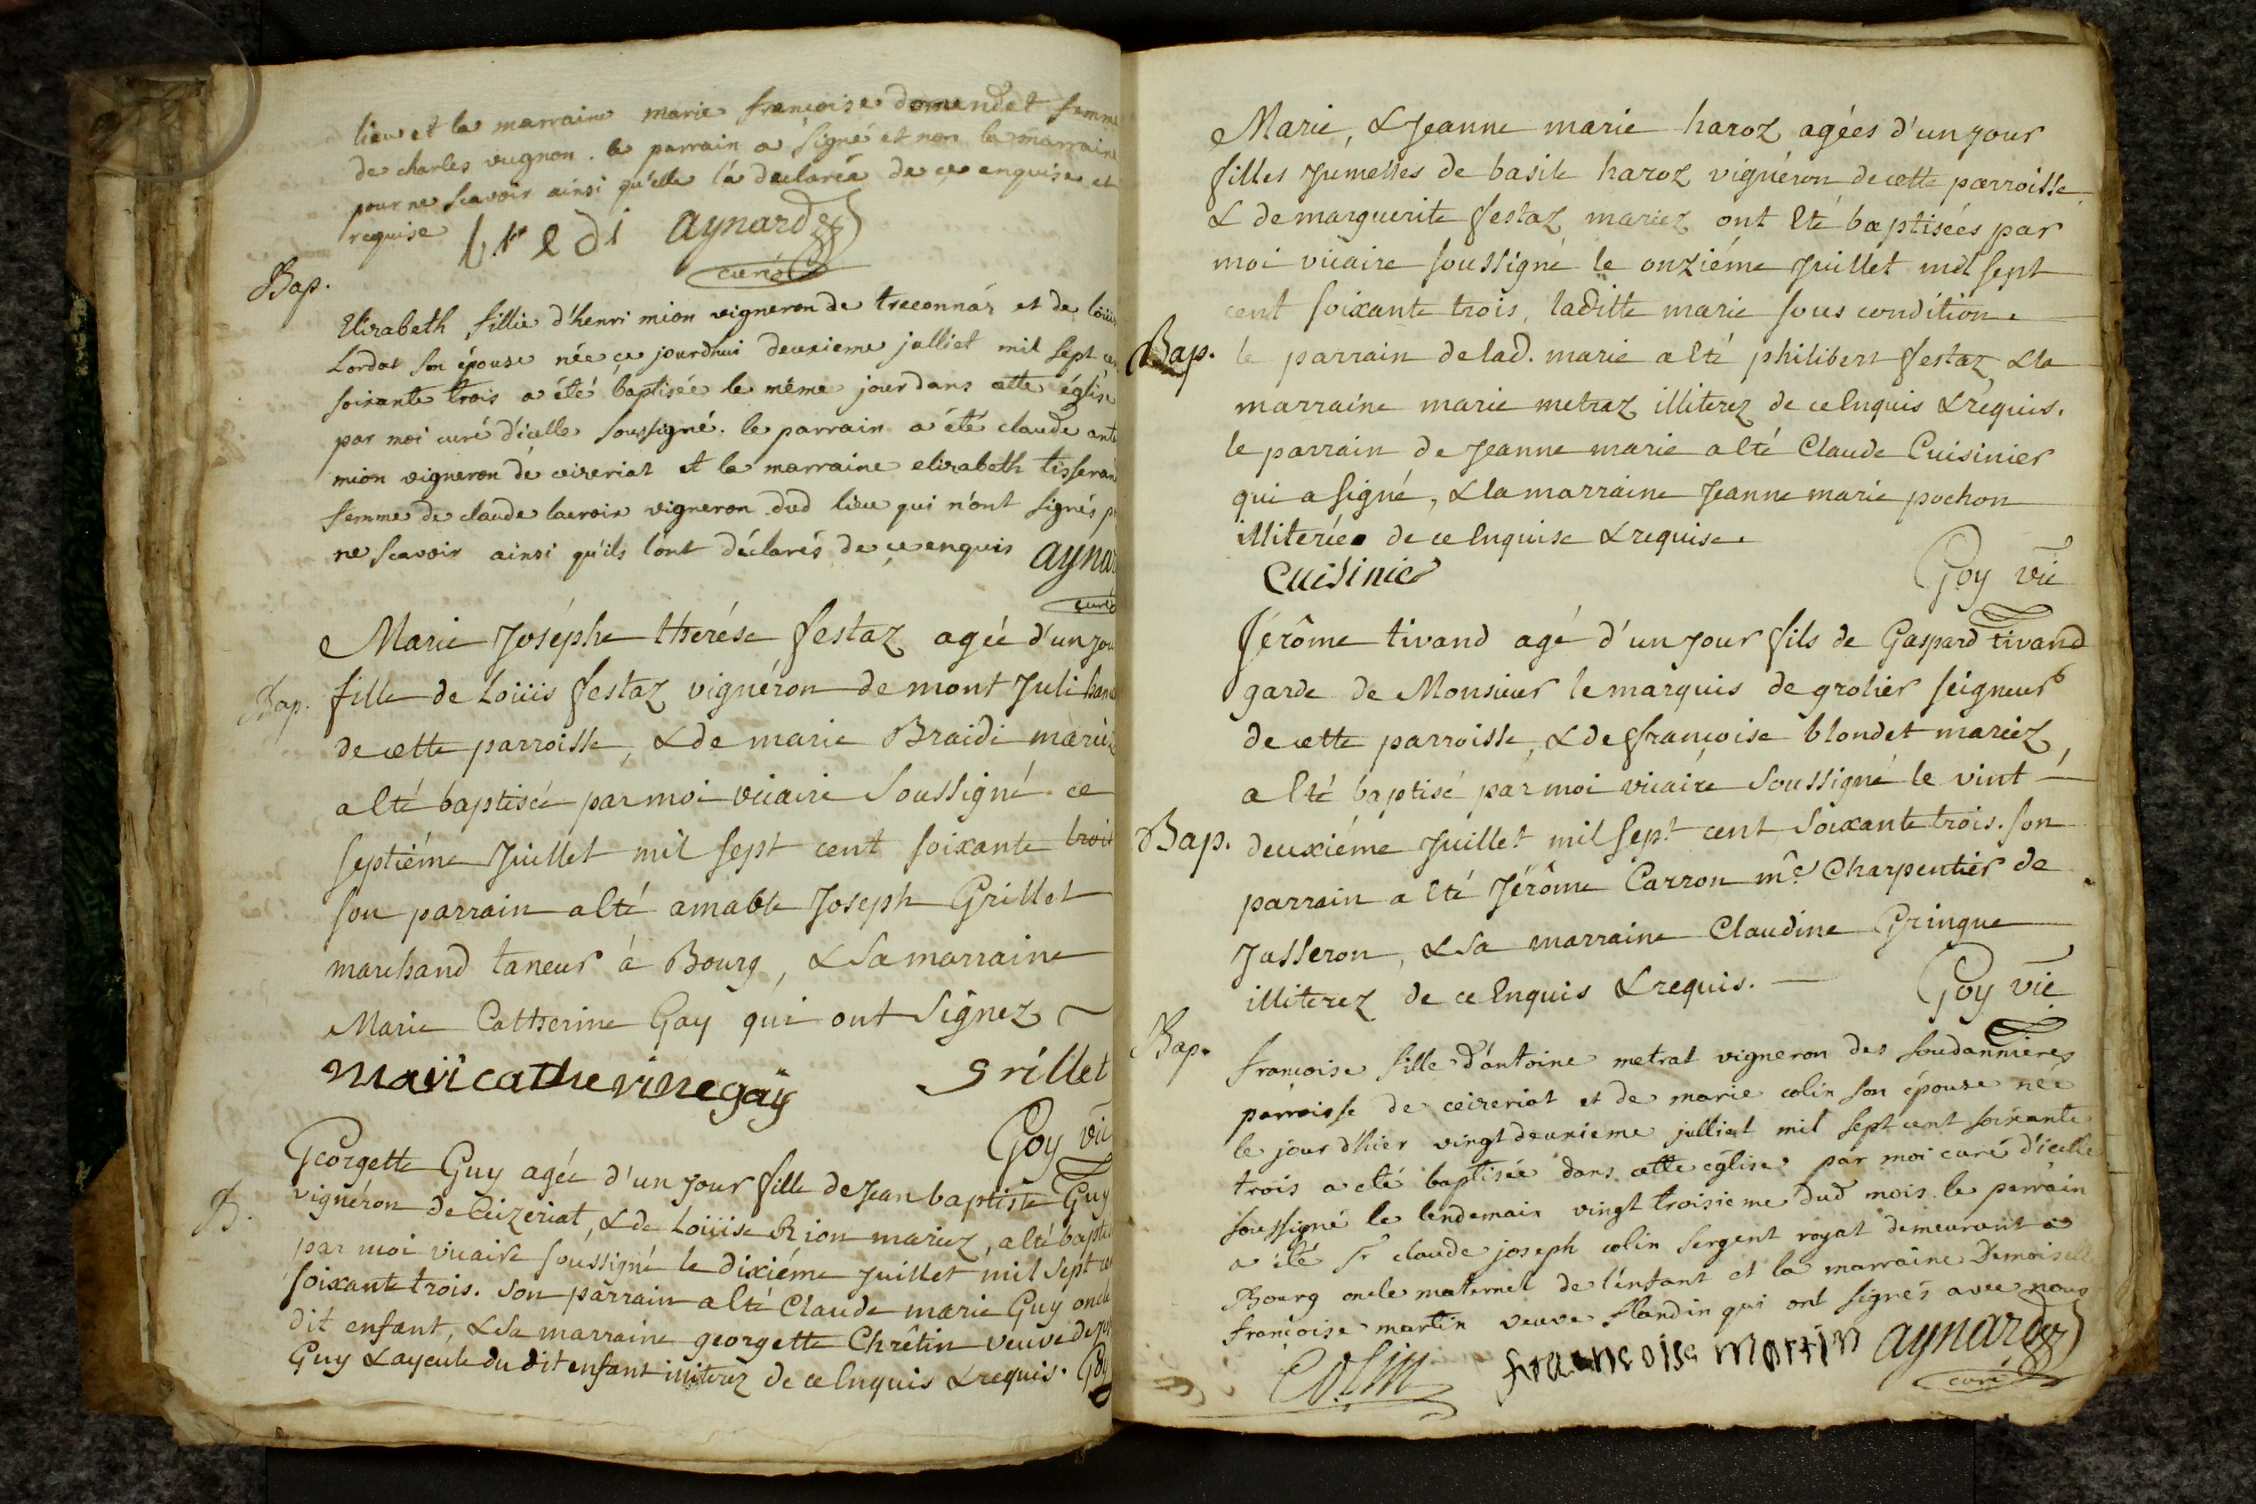 lieu et la marraine marie françoise domendet femme
de charles vugnon. le parrain a signé et non la marraine
pour ne scavoir ainsi qu'elle l'a declaréa de ce enquise et
requise aynard
curé
Bap.
Elizabeth fillie d'henri mion vigneron de treconnàs et de loüise
Lordat son épouse née ce jourdhui deuxieme julliet mil sept cen
soixante trois a été baptisée le même jour dans cette église
par moi curé d'icelle soussigné. le parrain a été claude ant
mion vigneron de ceizeriat et la marraine elizabeth tisseran
femme de claude lacroix vigneron dud lieu qui n'ont signés p
ne scavoir ainsi qu'ils l'ont déclarés de ce enquis aynar
curé
Marie Joséphe thérése festaz agée d'un jou
Bap. fille de Loüis festaz vignéron de mont Juli ham
de cette parroisse, & de marie Braidi mariéz
a été baptisée par moi vicaire soussigné ce
septiéme Juillet mil sept cent soixante trois
son parrain a été amable Joseph Grillet
marchand taneur à Bourg, & sa marraine
Marie Catherine Gay qui ont signez
mari catherine gaÿ grillet
Goy vic
Georgette Guy agée d'un jour fille de Jean baptiste Guy
B. vignéron de Ceizeriat, & de Loüise Rion mariez, a été baptis
par moi vicaire soussigné le dixiéme Juillet mil sept ce
soixante trois. son parrain a été Claude marie Guy oncle
dit enfant, & sa marraine georgette Chrêtin veuve de
Guy & ayeule du dit enfant illiterez de ce enquis & requis. Goy
Marie, & Jeanne marie haroz agées d'un jour
filles Jumelles de basile haroz vignéron de cette parroisse
& de marguerite festaz mariez ont été baptisées par
moi vicaire soussigné le onziéme Juillet mil sept
cent soixante trois, laditte marie sous condition.
Bap. le parrain de lad. marie a été philibert festaz, & la
marraine marie metraz illiterez de ce enquis & requis.
le parrain de Jeanne marie a été Claude Cuisinier
qui a signé, & la marraine Jeanne marie pochon
illiterée de ce enquise & requise.
Cuisinie Goy vic
Jérôme tivand agé d'un jour fils de Gaspard tivand
garde de Monsieur le marquis de grolier seigneur
de cette parroisse, & de françoise blondet mariez,
a été baptisé par moi vicaire soussigné le vint
Bap. deuxiéme Juillet mil sept cent soixante trois. son
parrain a été Jérôme Carron me Charpentier de
Jasseron, & sa marraine Claudine Gringue
illiterez de ce enquis & requis. Goy vic
Bap. françoise fille d'antoine metrat vigneron des soudannieres
parroisse de ceizeriat et de marie colin son épouse née
le jour d'hier vingt deuxieme julliet mil sept cent soixante
trois a été baptisée dans cette église par moi curé d'icelle
soussigné le lendemain vingt troisieme dud mois. le parrain
a été sr claude joseph colin sergent royal demeurant a
Bourg oncle maternel de l'enfant et la marraine Demoiselle
françoise martin veuve flandin qui ont signés avec nous
Colin francoise martin aynard
curé